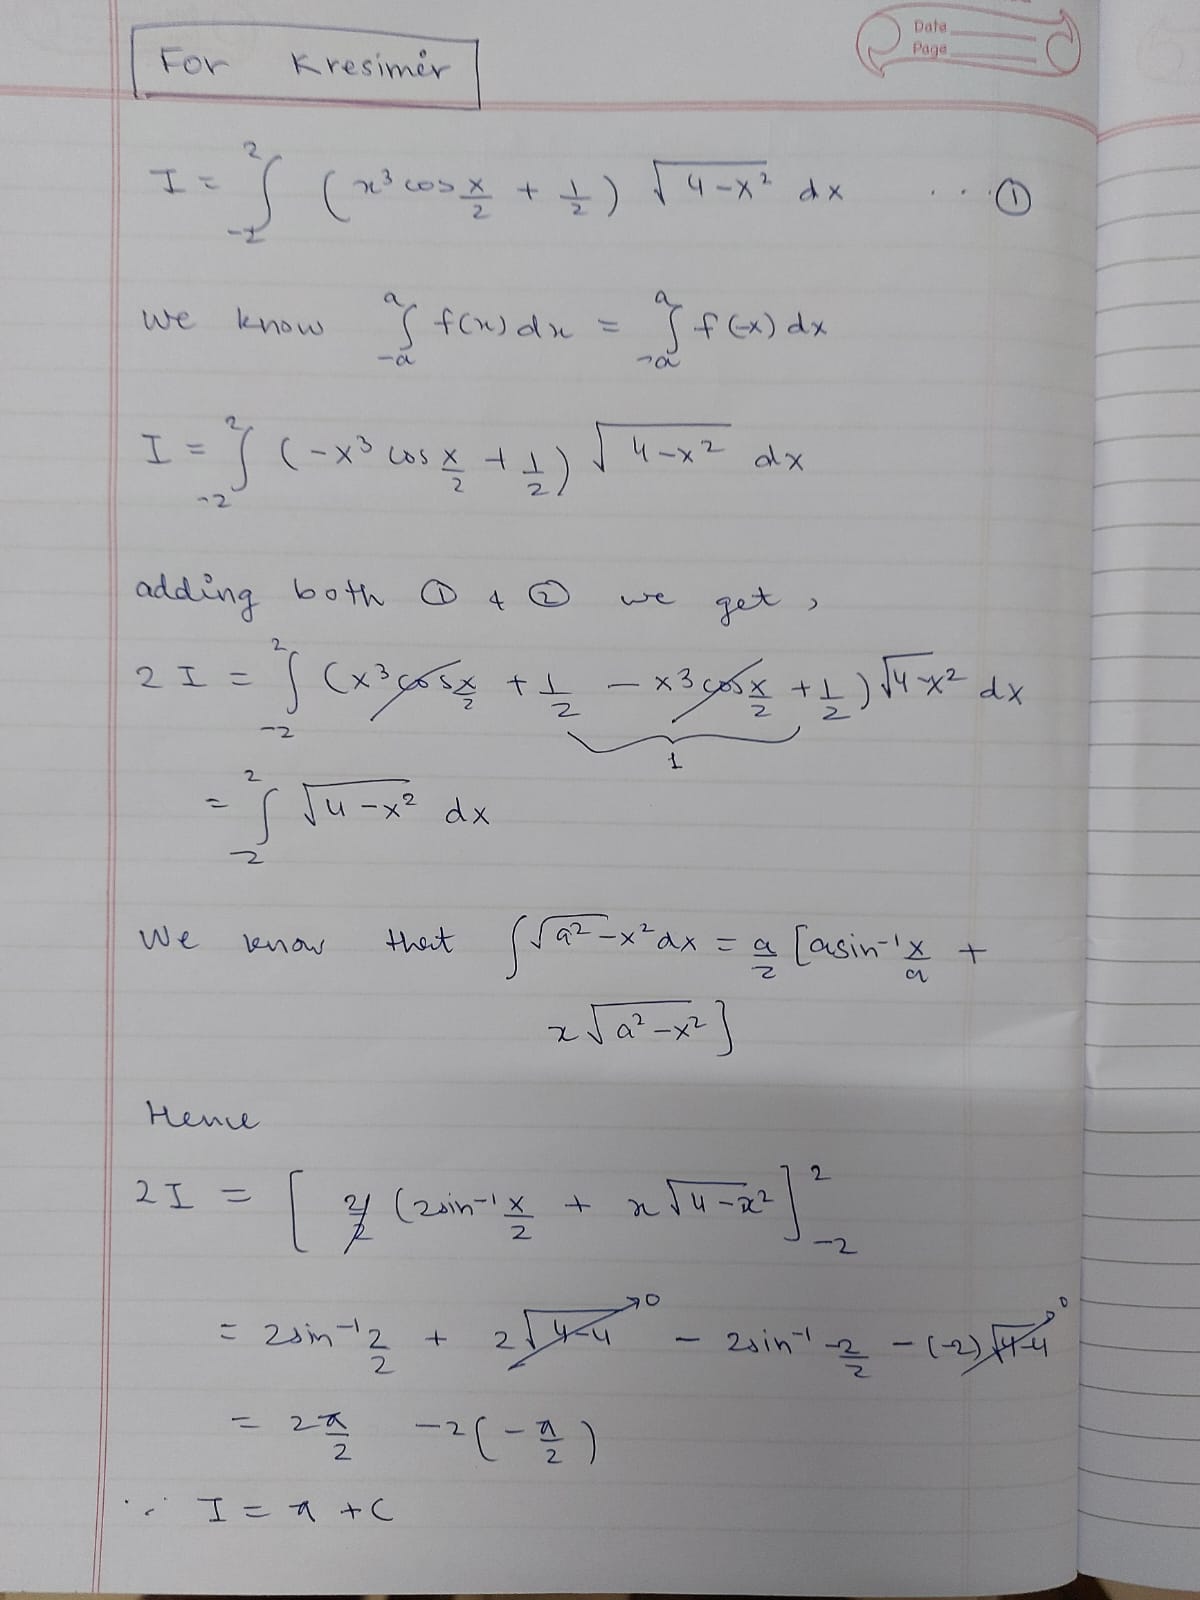 Date
Page
For Kresimir
I = ∫_{-2}^{2} (x³ cos x/2 + 1/2) √(4-x²) dx ... ①
we know ∫_{-a}^{a} f(x) dx = ∫_{-a}^{a} f(-x) dx
I = ∫_{-2}^{2} (-x³ cos x/2 + 1/2) √(4-x²) dx
adding both ① & ② we get,
2I = ∫_{-2}^{2} (x³ cos x/2 + 1/2 - x³ cos x/2 + 1/2) √(4-x²) dx
1
= ∫_{-2}^{2} √(4-x²) dx
We know that ∫√(a²-x²) dx = a/2 [a sin⁻¹ x/a +
x √(a²-x²)]
Hence
2I = [2/2 (2 sin⁻¹ x/2 + x √(4-x²)]_{-2}^{2}
= 2 sin⁻¹ 2/2 + 2√(4-4) → 0 - 2 sin⁻¹ -2/2 - (-2) √(4-4) → 0
= 2 π/2 - 2(-π/2)
∵ I = π + C